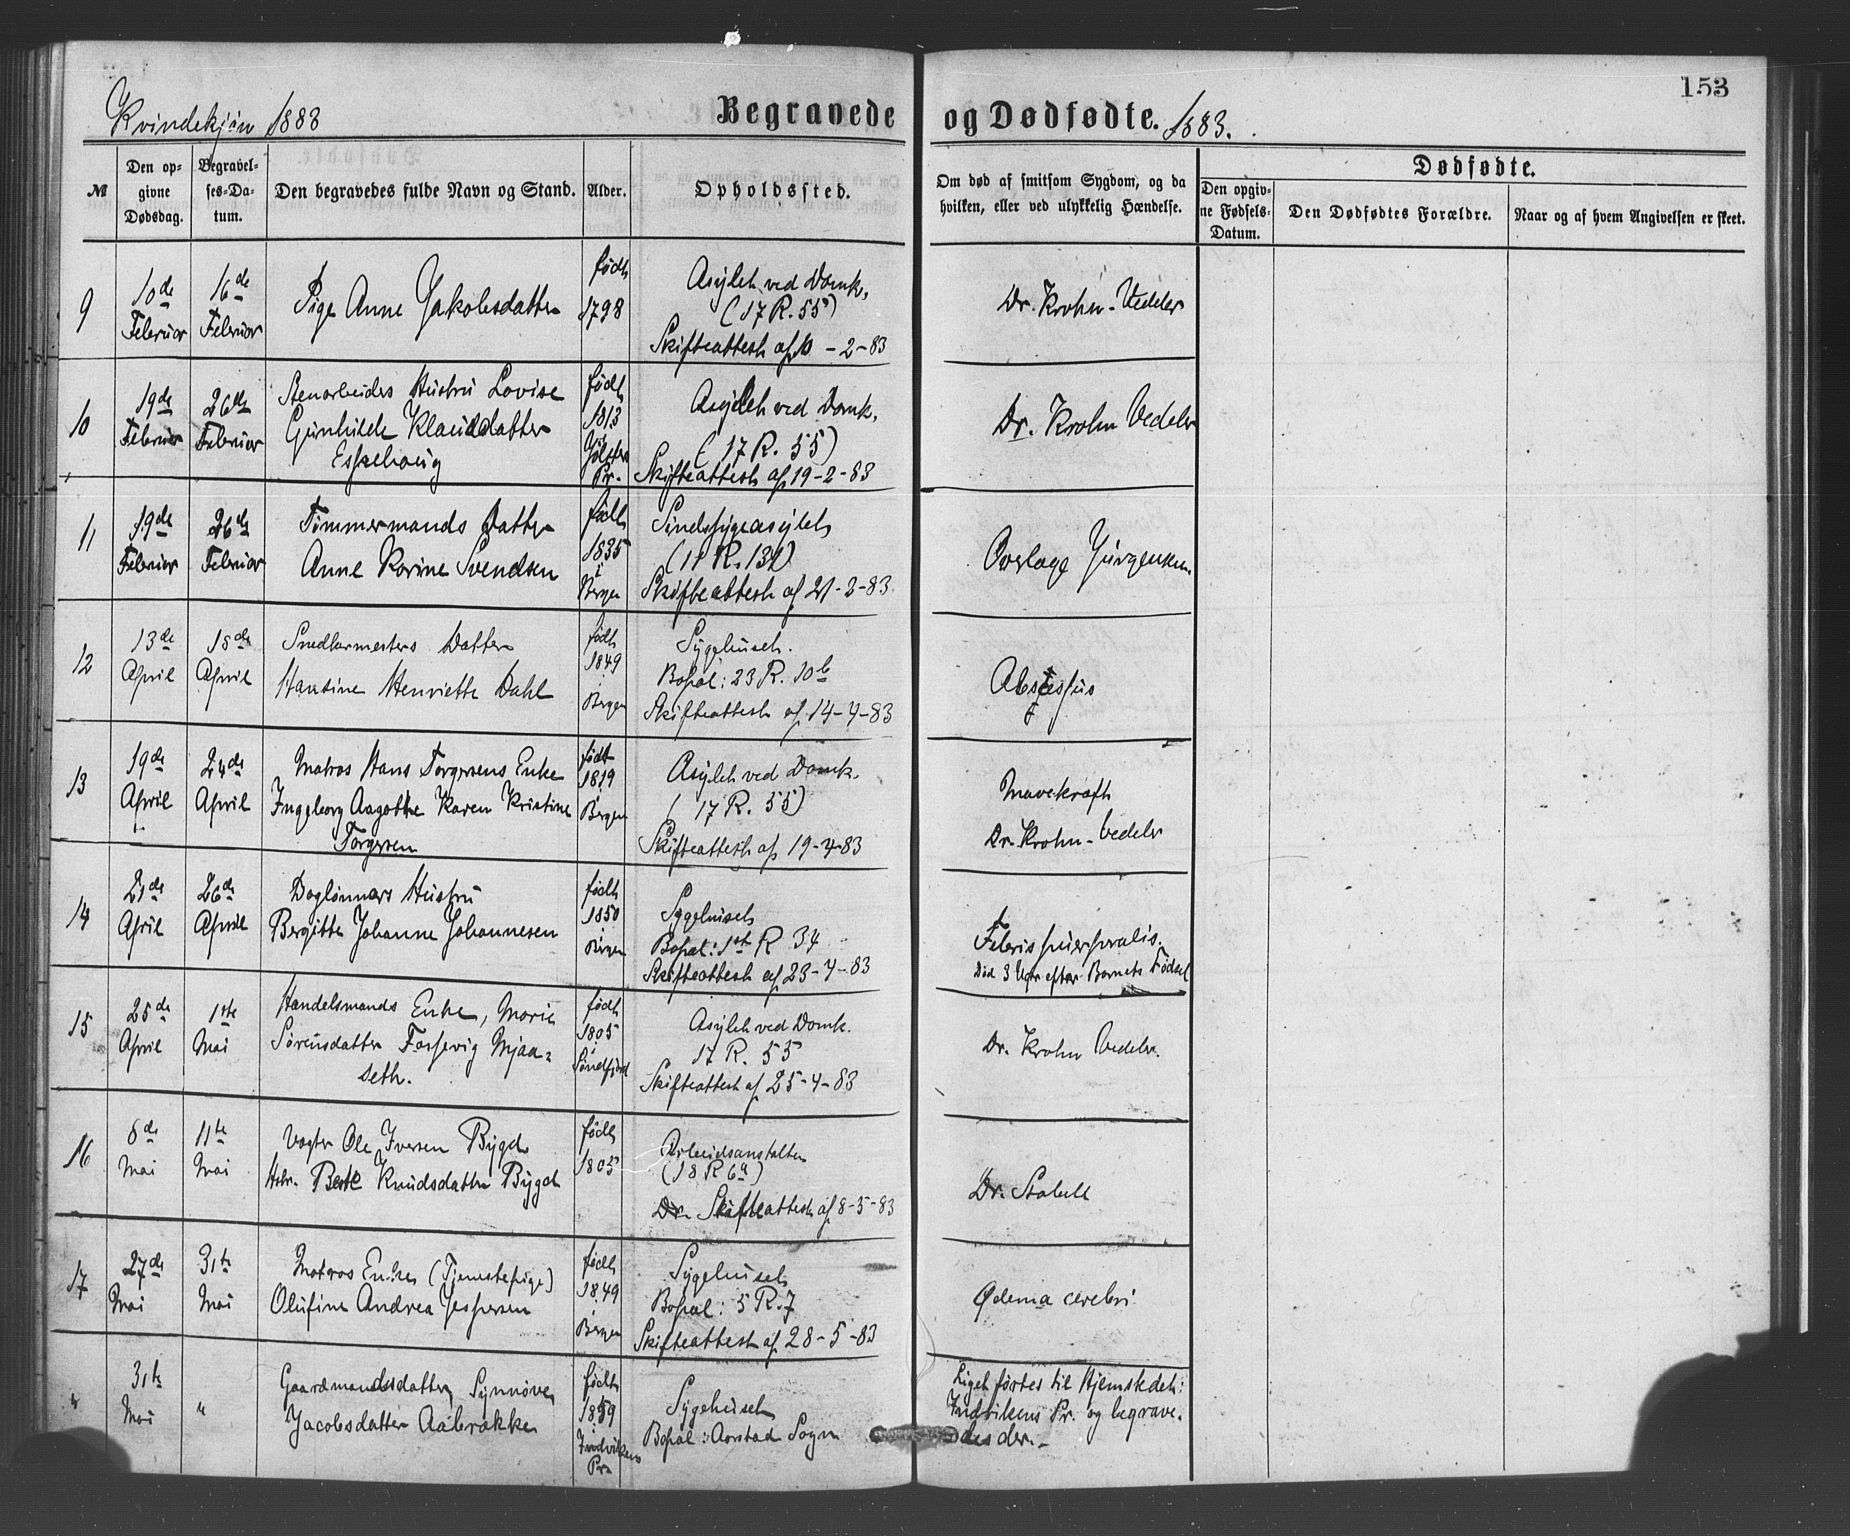 153
Kvindekjøn 1883
Begravede og Dødfødte. 1883.
№
Den op-
givne
Dødsdag.
Begravel-
ses-Da-
tum.
Den begravedes fulde Navn og Stand.
Alder.
Opholdssted.
Om død af smitsom Sygdom, og da
hvilken, eller ved ulykkelig Hændelse.
Dødfødte.
Den opgiv-
ne Fødsels-
Datum.
Den Dødfødtes Forældre.
Naar og af hvem Angivelsen er skeet.
9
10de
Februar
16de
Februar
Pige Anne Jakobsdatter
født
1798
Asylet ved Domk.
(17 R. 55)
Skifteattest af 10-2-83
Dr. Krohn-Vedeler
10
19de
Februar
26de
Februar
Stenarbeiders Hustru Lovise
Gunhilde Klausdatter
Eskehoug
født
1813
Jølster
Pr.
Asylet ved Domk.
(17 R. 55)
Skifteattest af 19-2-83
Dr. Krohn Vedeler
11
19de
Februar
26de
Februar
Timmermands Datter
Anne Karine Svendsen
født
1835
i
Bergen
Sindssygeasylet
(11 R.
Skifteattest af 21-2-83
Overlæge Jürgensen
12
13de
April
18de
April
Snedkermesters Datter
Hansine Henriette Dahl
født
1849
i
Bergen
Sygehuset.
Bopæl: 23 R. 10b
Skifteattest af 14-4-83
Abscessus
13
19de
April
24de
April
Matros Hans Torgersens Enke
Ingeborg Aagothe Karen Kristine
Torgersen
født
1819
i
Bergen
Asylet ved Domk.
(17 R. 55)
Skifteattest af 19-4-83
Mavekræft
Dr. Krohn-Vedeler
14
21de
April
26de
April
Daglønners Hustru
Bergitte Johanne Johannesen
født
1850
i
Bergen
Sygehuset
Bopæl: 1st R 34
Skifteattest af 23-4-83
Febris puerperalis.
Død 3 Uger efter Barnets Fødsel
15
25de
April
1ste
Mai
Handelsmands Enke, Marie
Sørensdatter Fossevig Mjaa-
seth.
født
1805
i
Søndfjord
Asylet ved Domk.
17 R. 55
Skifteattest af 25-4-83
Dr. Krohn Vedeler.
16
8de
Mai
11te
Mai
Vægter Ole Iversen Bygd
Hstr. Berte Knudsdatter Bygd
født
1805
Arbeidsanstalten
(18 R 6a)
Dr. Skifteattest af 8-5-83
Dr. Stabell
17
27de
Mai
31te
Mai
Matros Enke (Tjenestepige)
Olufine Andrea Jespersen
født
1849
i
Bergen
Sygehuset
Bopæl: 5 R. 7
Skifteattest af 28-5-83
Ødema cerebri
"
31te
Mai
"
Gaardmandsdatter Synnøve
Jacobsdatter Aabrække
født
1859
i
Indvikens
Pr.
Sygehuset
Bopæl: Aarstad Sogn
Liget førtes til Hjemstedet:
Indvikens Pr. og begrave-
des der.-